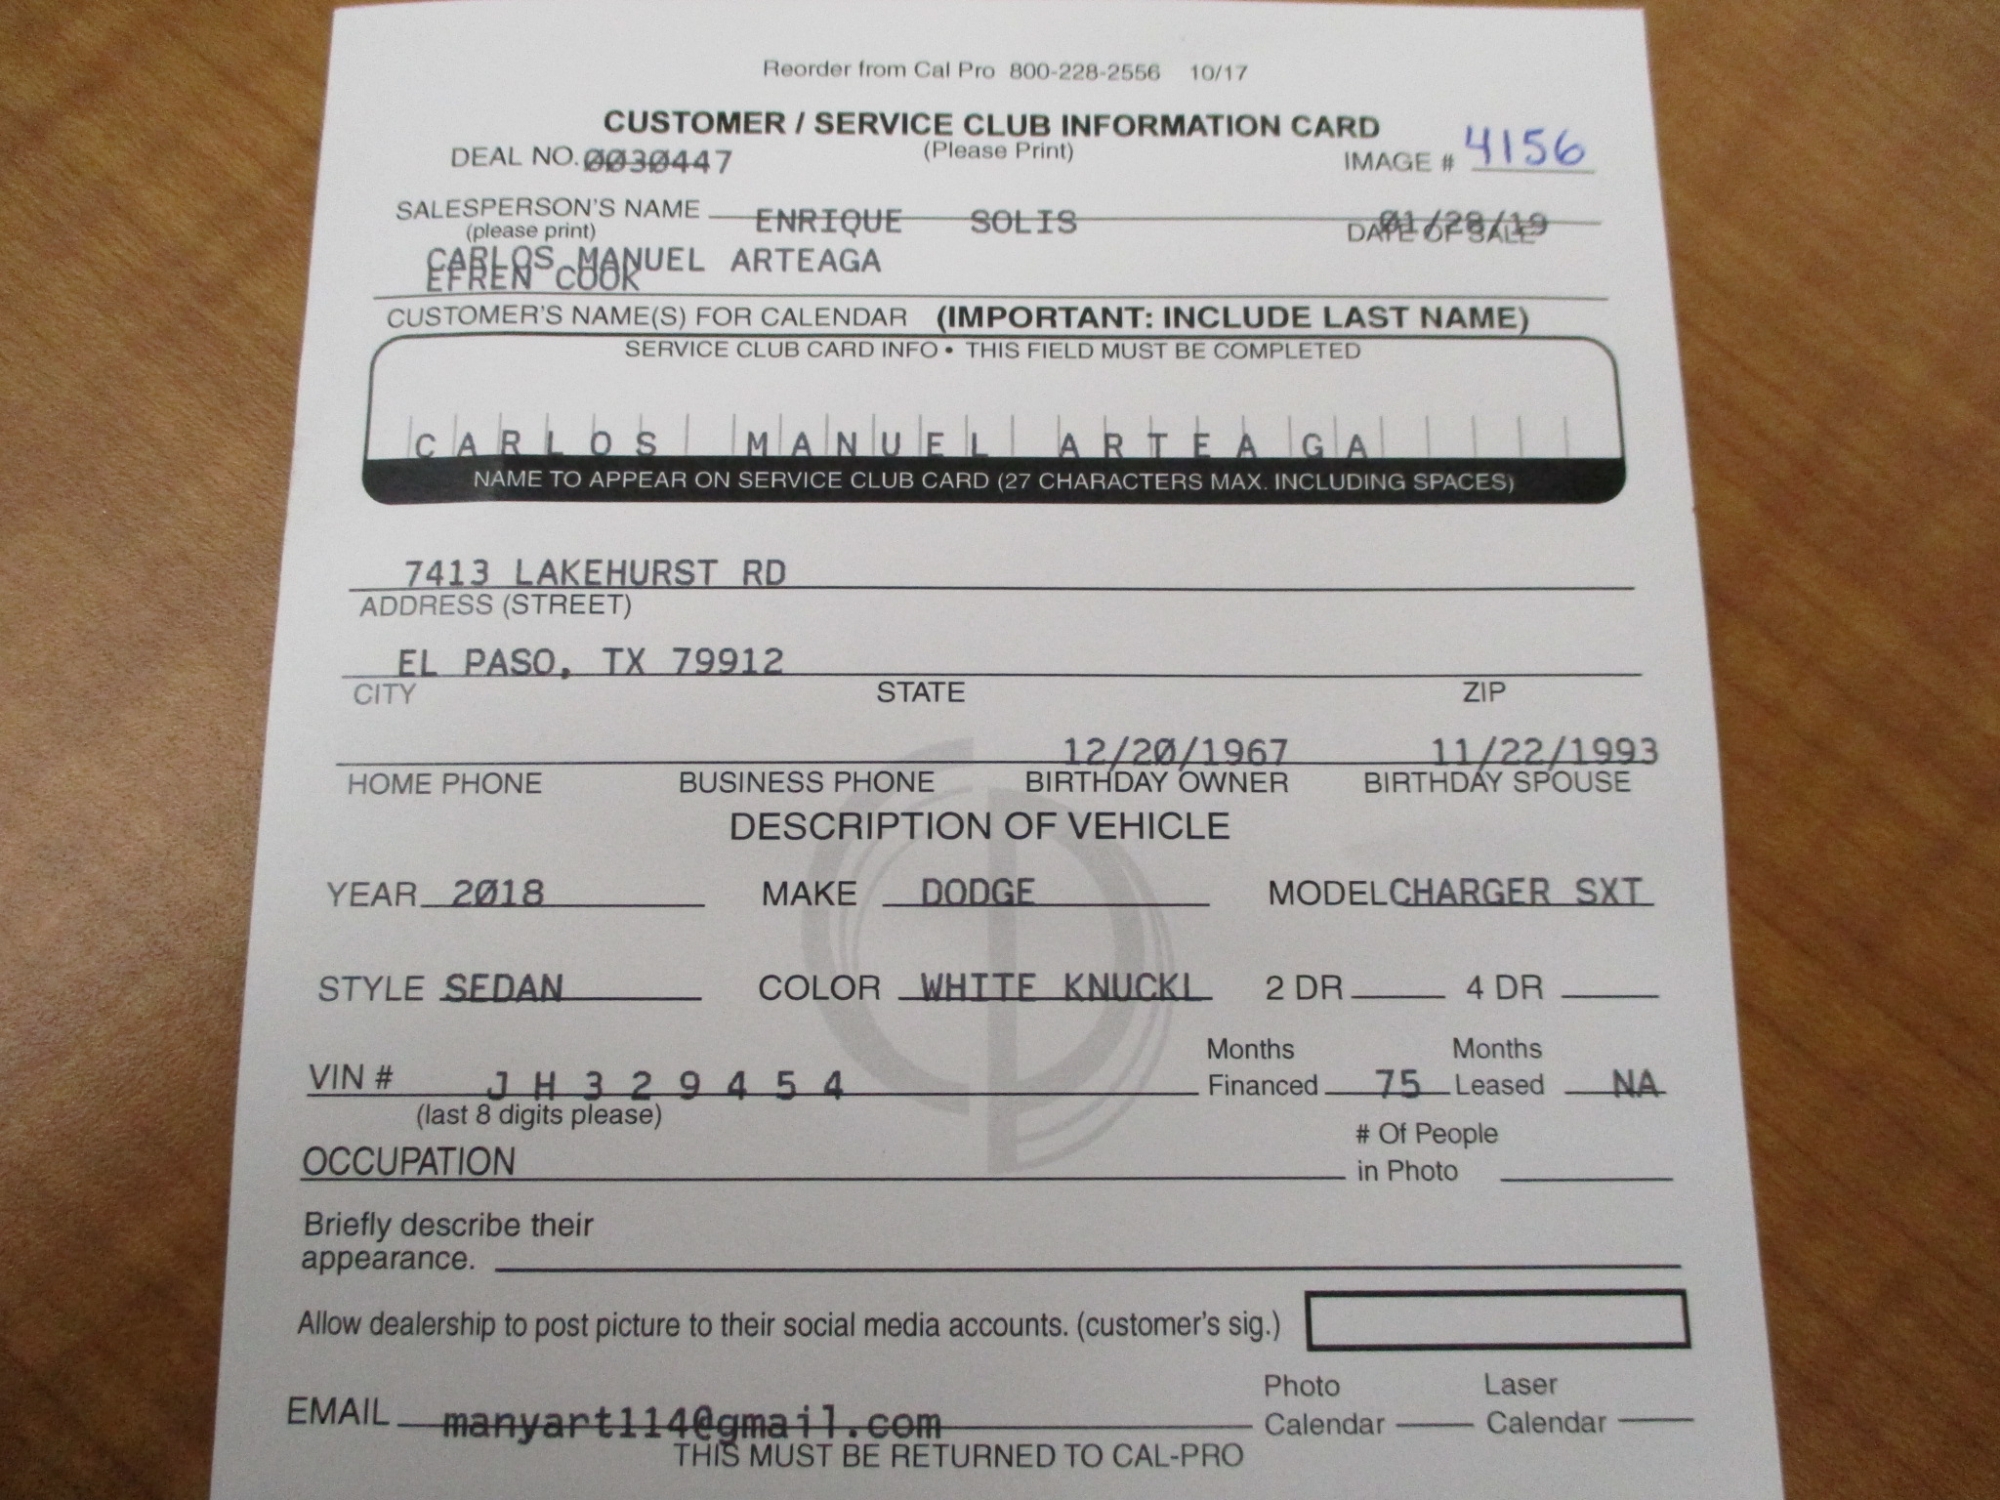 Reorder from Cal Pro 800-228-2556 10/17
CUSTOMER / SERVICE CLUB INFORMATION CARD
DEAL NO. 0030447 (Please Print) IMAGE # 4156
SALESPERSON'S NAME ENRIQUE SOLIS 01/28/19
(please print) DATE OF SALE
CARLOS MANUEL ARTEAGA
EFREN COOK
CUSTOMER'S NAME(S) FOR CALENDAR (IMPORTANT: INCLUDE LAST NAME)
SERVICE CLUB CARD INFO • THIS FIELD MUST BE COMPLETED
CARLOS MANUEL ARTEAGA
NAME TO APPEAR ON SERVICE CLUB CARD (27 CHARACTERS MAX. INCLUDING SPACES)
7413 LAKEHURST RD
ADDRESS (STREET)
EL PASO, TX 79912
CITY STATE ZIP
12/20/1967 11/22/1993
HOME PHONE BUSINESS PHONE BIRTHDAY OWNER BIRTHDAY SPOUSE
DESCRIPTION OF VEHICLE
YEAR 2018 MAKE DODGE MODEL CHARGER SXT
STYLE SEDAN COLOR WHITE KNUCKL 2 DR 4 DR
Months Months
VIN # JH329454 Financed 75 Leased NA
(last 8 digits please)
# Of People
OCCUPATION in Photo
Briefly describe their
appearance.
Allow dealership to post picture to their social media accounts. (customer's sig.)
Photo Laser
EMAIL manyart114@gmail.com Calendar Calendar
THIS MUST BE RETURNED TO CAL-PRO